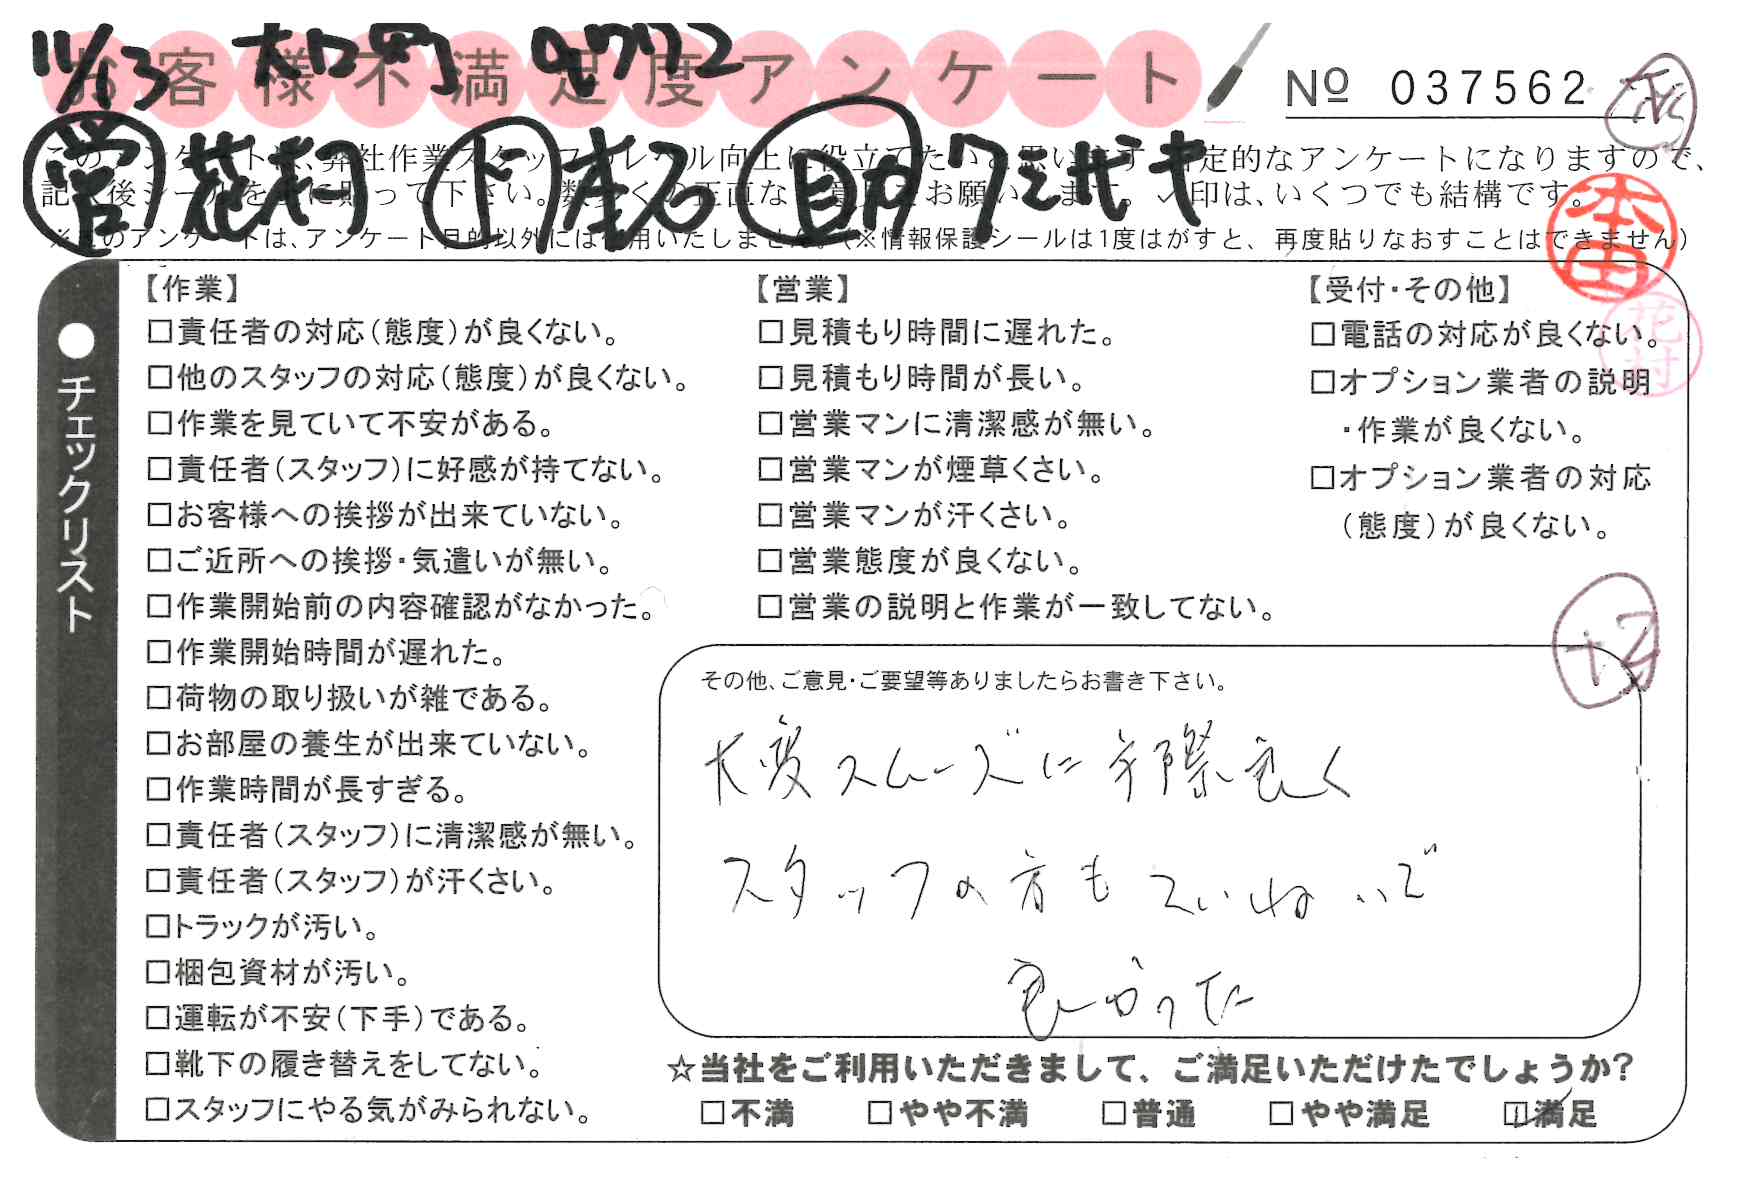 11/13 大口町 0772
お客様不満足度アンケート
№ 037562
営 花村 ド 本石 助 クミ代キ
このアンケートは、弊社作業スタッフのレベル向上に役立てたいと思います。否定的なアンケートになりますので、
記入後シールを上に貼って下さい。数多くの正直なご意見をお願いします。✓印は、いくつでも結構です。
※このアンケートは、アンケート目的以外には使用いたしません。(※情報保護シールは1度はがすと、再度貼りなおすことはできません)
本田
花村
●チェックリスト
【作業】
□責任者の対応(態度)が良くない。
□他のスタッフの対応(態度)が良くない。
□作業を見ていて不安がある。
□責任者(スタッフ)に好感が持てない。
□お客様への挨拶が出来ていない。
□ご近所への挨拶・気遣いが無い。
□作業開始前の内容確認がなかった。
□作業開始時間が遅れた。
□荷物の取り扱いが雑である。
□お部屋の養生が出来ていない。
□作業時間が長すぎる。
□責任者(スタッフ)に清潔感が無い。
□責任者(スタッフ)が汗くさい。
□トラックが汚い。
□梱包資材が汚い。
□運転が不安(下手)である。
□靴下の履き替えをしてない。
□スタッフにやる気がみられない。
【営業】
□見積もり時間に遅れた。
□見積もり時間が長い。
□営業マンに清潔感が無い。
□営業マンが煙草くさい。
□営業マンが汗くさい。
□営業態度が良くない。
□営業の説明と作業が一致してない。
【受付・その他】
□電話の対応が良くない。
□オプション業者の説明
・作業が良くない。
□オプション業者の対応
(態度)が良くない。
その他、ご意見・ご要望等ありましたらお書き下さい。
大変スムーズに手際良く
スタッフの方もていねいで
良かった
☆当社をご利用いただきまして、ご満足いただけたでしょうか?
□不満 □やや不満 □普通 □やや満足 ☑満足